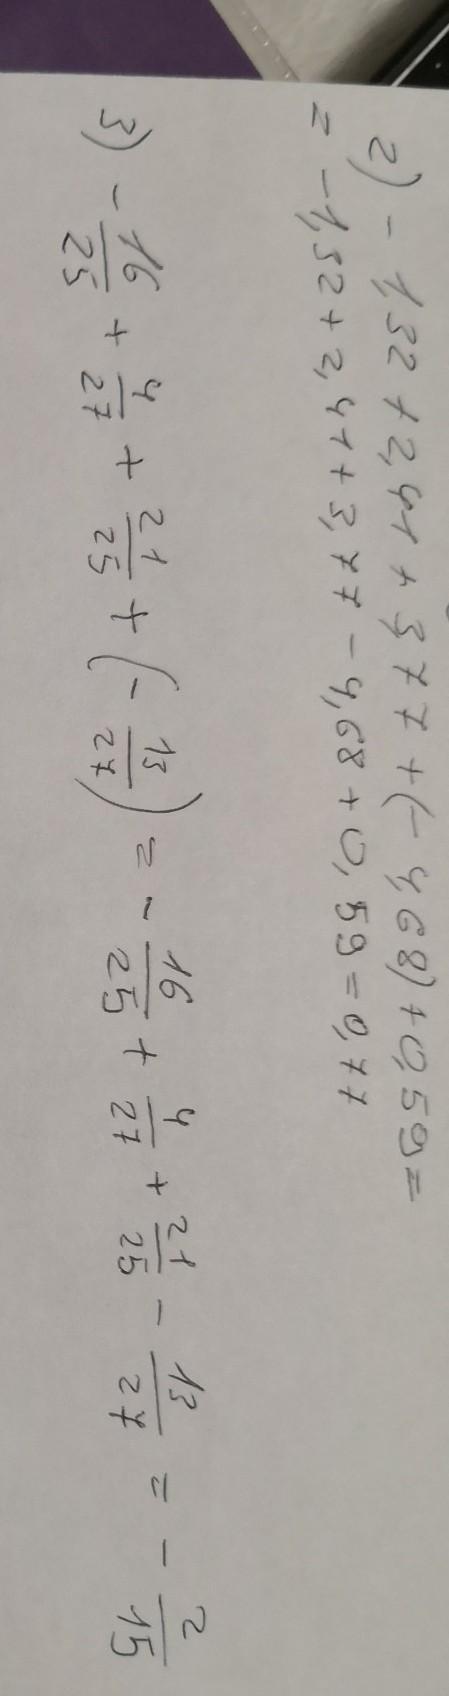 2) - 1,32 + 2,41 + 3,77 + (- 4,68) + 0,59 =
= - 1,32 + 2,41 + 3,77 - 4,68 + 0,59 = 0,77
3) - 16/25 + 4/27 + 21/25 + (- 13/27) = - 16/25 + 4/27 + 21/25 - 13/27 = - 2/15